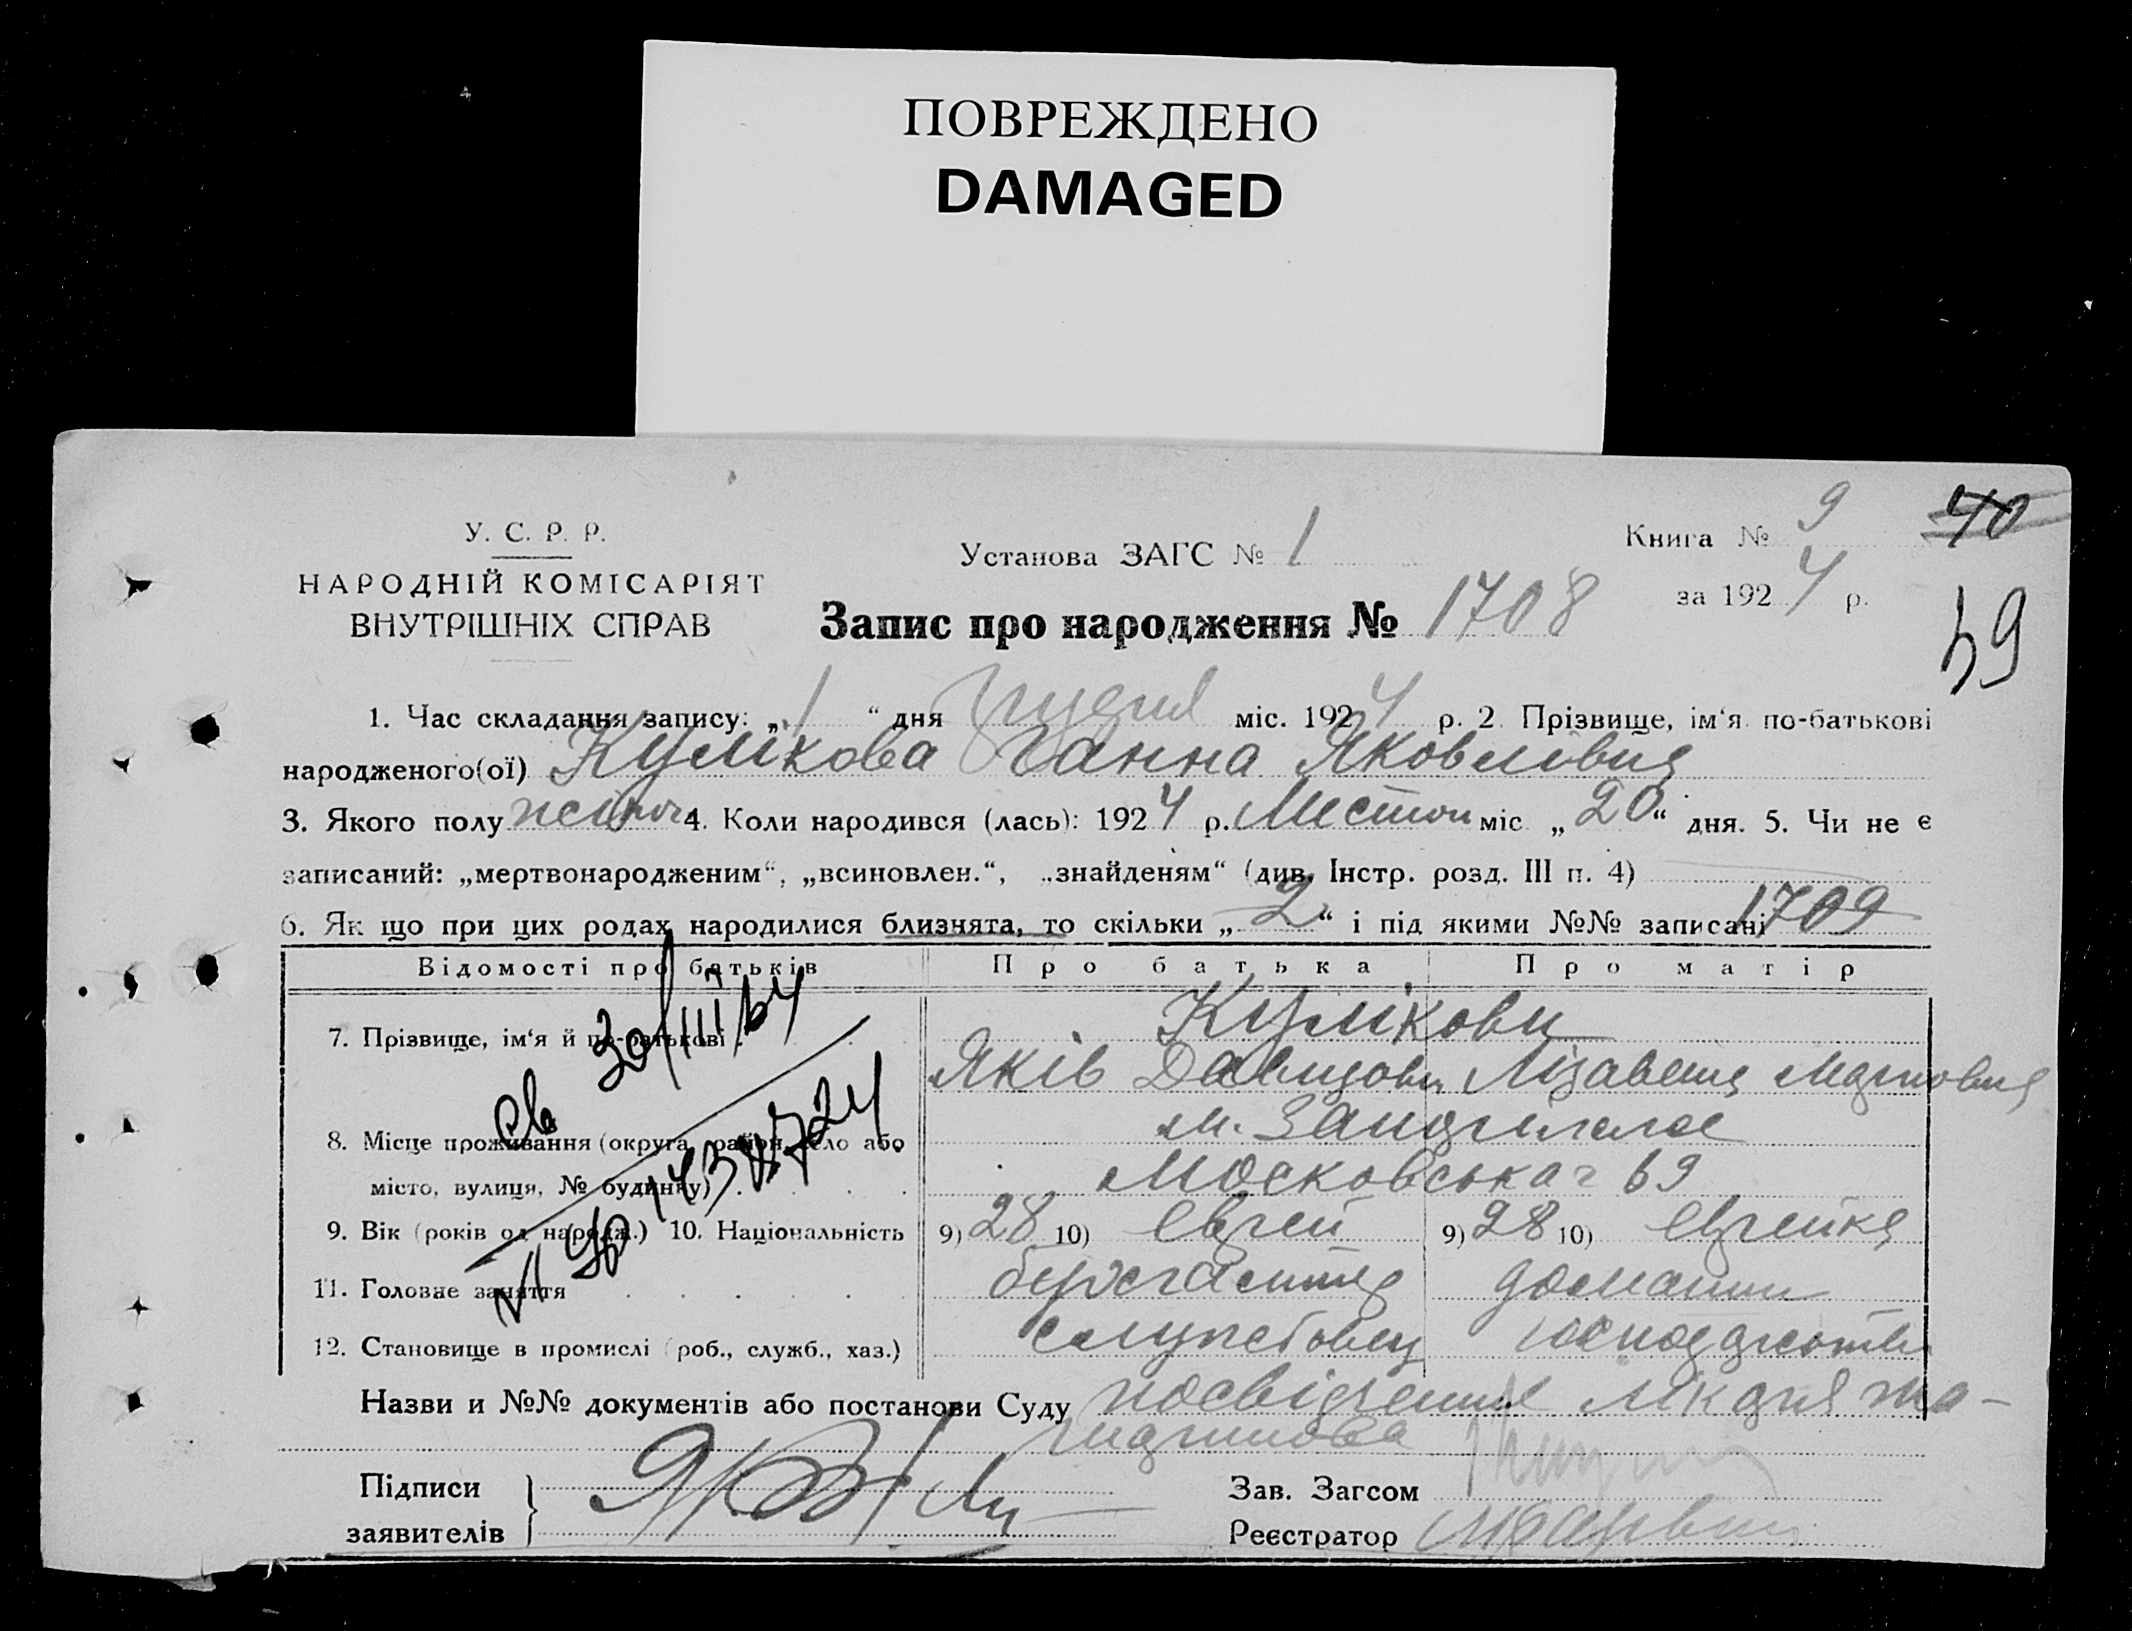 ПОВРЕЖДЕНО
DAMAGED
У. С. Р. Р.
НАРОДНІЙ КОМІСАРІЯТ
ВНУТРІШНІХ СПРАВ
Установа ЗАГС № 1
Запис про народження № 1708
Книга № 9
за 1924 р.
40
39
1. Час складання запису: „1“ дня Грудня міс. 1924 р. 2. Прізвище, ім‘я по-батькові
народженого(ої) Кулікова Ганна Яковлівна
3. Якого полу жіноч 4. Коли народився (лась): 1924 р. Листоп міс „20“ дня. 5. Чи не є
записаний: „мертвонародженим“, „всиновлен.“, „знайденям“ (див. Інстр. розд. III п. 4)
6. Як що при цих родах народилися близнята, то скільки „2“ і під якими №№ записані 1709
Відомості про батьків Про батька Про матір
7. Прізвище, ім‘я й по-батькові Кулікови
Яків Давидови Лізавета
8. Місце проживання (округа, район, село або
місто, вулиця, № будинку) Московська 69
9. Вік (років од народж.) 10. Національність 9) 28 10) Єврей 9) 28 10) Єврейка
11. Головне заняття домашнє
12. Становище в промислі (роб., служб., хаз.) службовець господарство
св 30/III/64
Назви и №№ документів або постанови Суду посвідчення
Підписи
заявителів
Зав. Загсом
Реєстратор